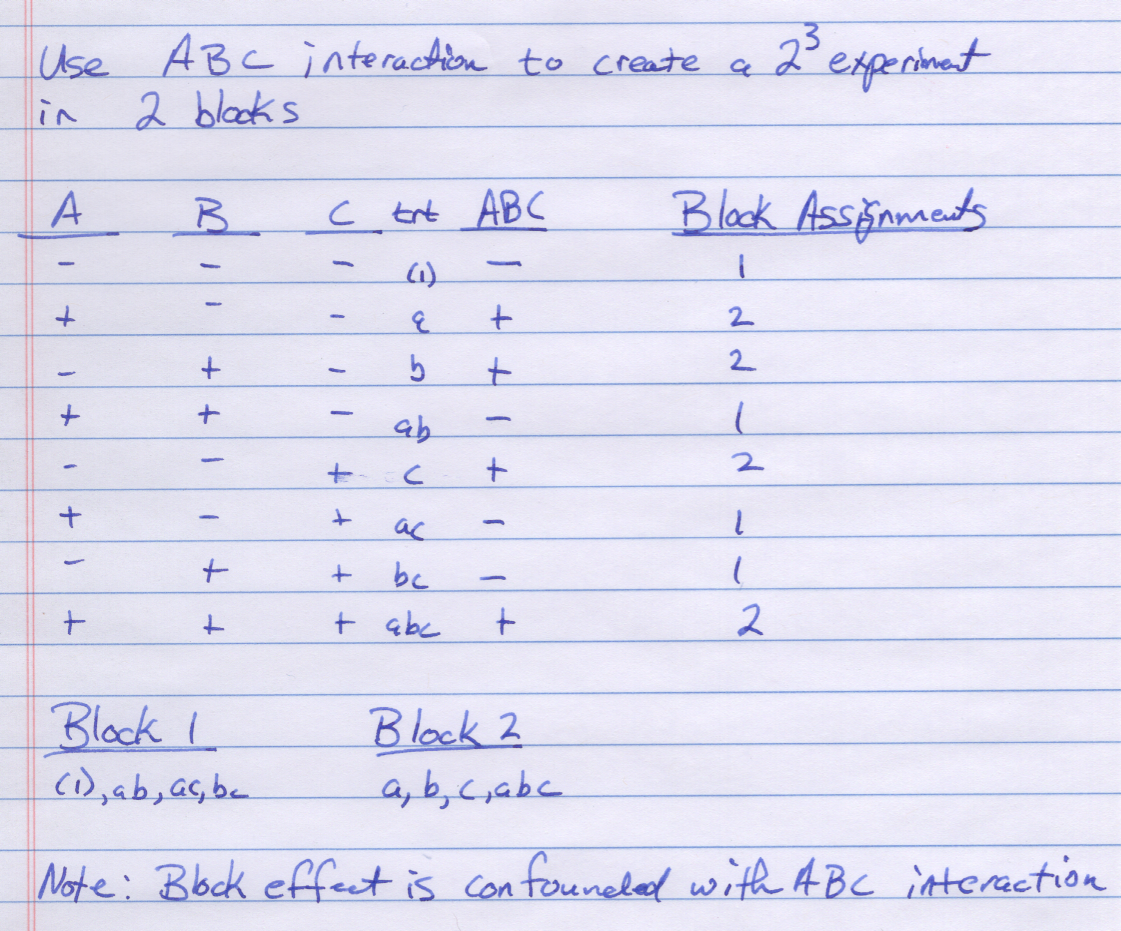 Use ABC interaction to create a 2³ experiment
in 2 blocks
A B C trt ABC Block Assignments
- - - (1) - 1
+ - - a + 2
- + - b + 2
+ + - ab - 1
- - + c + 2
+ - + ac - 1
- + + bc - 1
+ + + abc + 2
Block 1 Block 2
(1), ab, ac, bc a, b, c, abc
Note: Block effect is confounded with ABC interaction